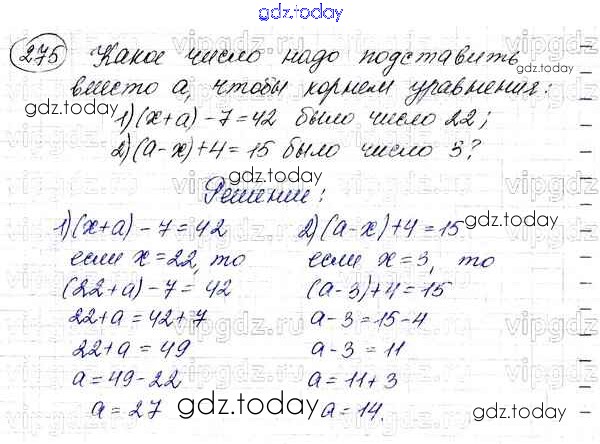 gdz.today
275 Какое число надо подставить
вместо а, чтобы корнем уравнения:
1)(x+a)-7=42 было число 22;
2)(a-x)+4=15 было число 3?
Решение:
1)(x+a)-7=42
если x=22, то
(22+a)-7=42
22+a=42+7
22+a=49
a=49-22
a=27
2)(a-x)+4=15
если x=3, то
(a-3)+4=15
a-3=15-4
a-3=11
a=11+3
a=14.
gdz.today
gdz.today
gdz.today
gdz.today
gdz.today
gdz.today
gdz.today
vipgdz.ru
vipgdz.ru
vipgdz.ru